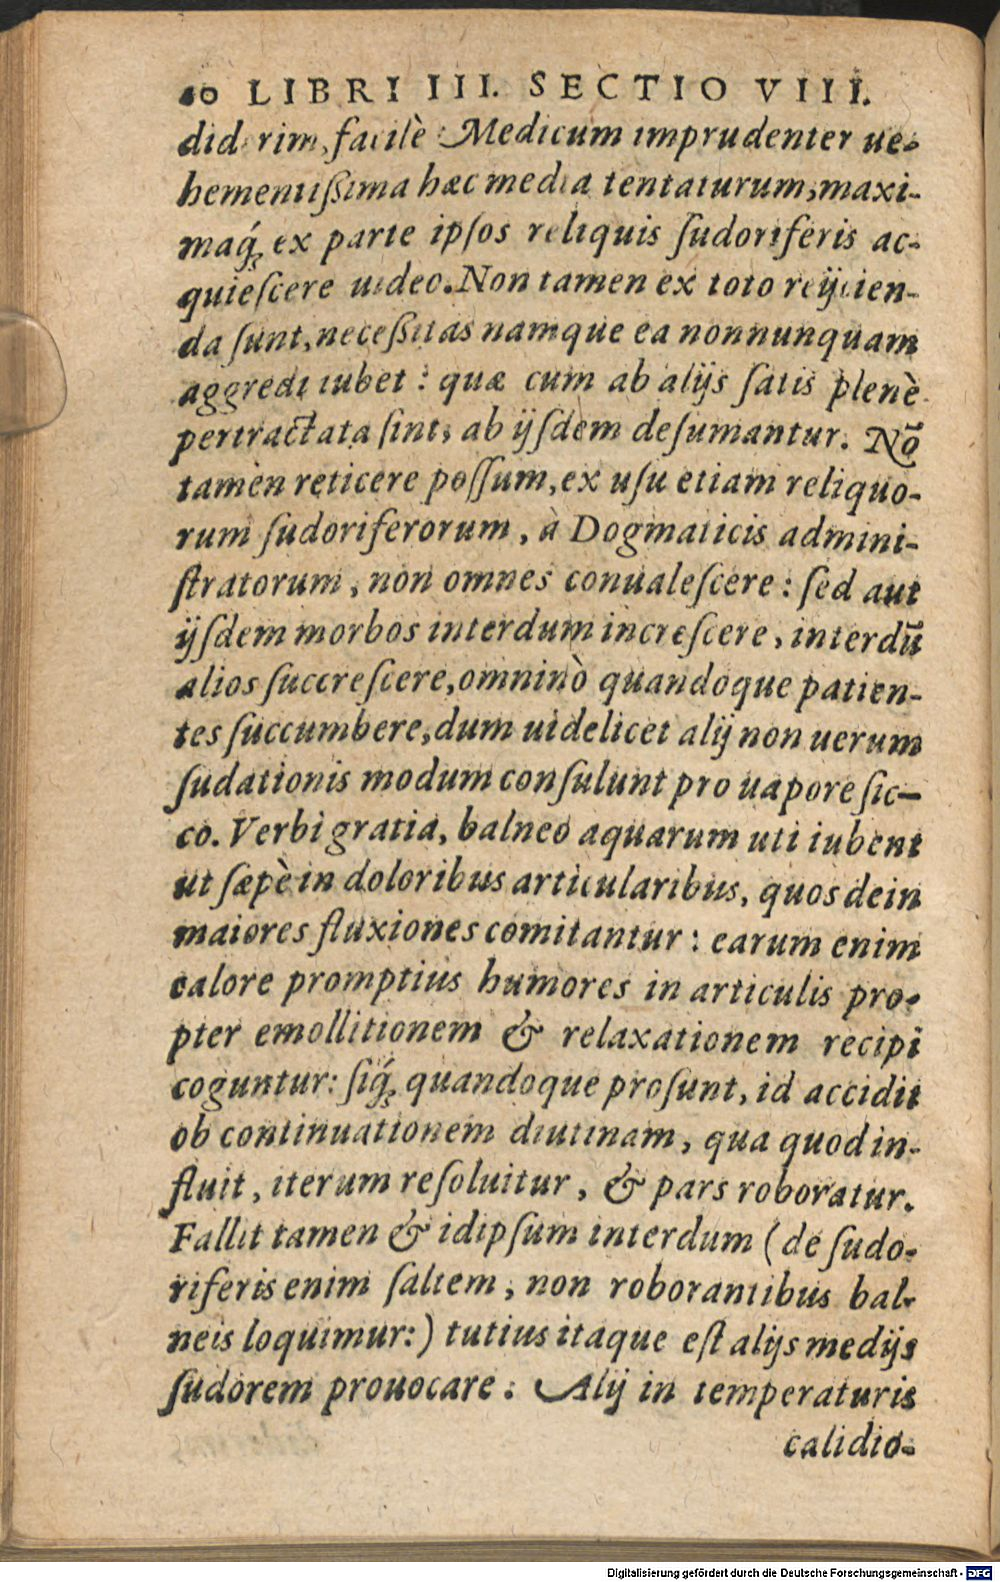 10 LIBRI III. SECTIO VIII.
diderim, facilè Medicum imprudenter ue-
hementißima hæc media tentaturum, maxi-
maq́ꝫ ex parte ipſos reliquis ſudoriferis ac-
quieſcere uideo. Non tamen ex toto reijcien-
da ſunt, neceßitas namque ea nonnunquam
aggredi iubet: quæ cum ab alijs ſatis plenè
pertractata ſint, ab ijſdem deſumantur. Nō
tamen reticere poſſum, ex uſu etiam reliquo-
rum ſudoriferorum, à Dogmaticis admini-
ſtratorum, non omnes conualeſcere: ſed aut
ijſdem morbos interdum increſcere, interdū
alios ſuccreſcere, omninò quandoque patien-
tes ſuccumbere, dum uidelicet alij non uerum
ſudationis modum conſulunt pro uapore ſic-
co. Verbi gratia, balneo aquarum uti iubent
ut ſæpè in doloribus articularibus, quos dein
maiores fluxiones comitantur: earum enim
calore promptius humores in articulis pro-
pter emollitionem & relaxationem recipi
coguntur: ſiq́ꝫ quandoque proſunt, id accidit
ob continuationem diutinam, qua quod in-
fluit, iterum reſoluitur, & pars roboratur.
Fallit tamen & idipſum interdum (de ſudo-
riferis enim ſaltem, non roborantibus bal-
neis loquimur:) tutius itaque eſt alijs medijs
ſudorem prouocare: Alij in temperaturis
calidio-
Digitalisierung gefördert durch die Deutsche Forschungsgemeinschaft - DFG